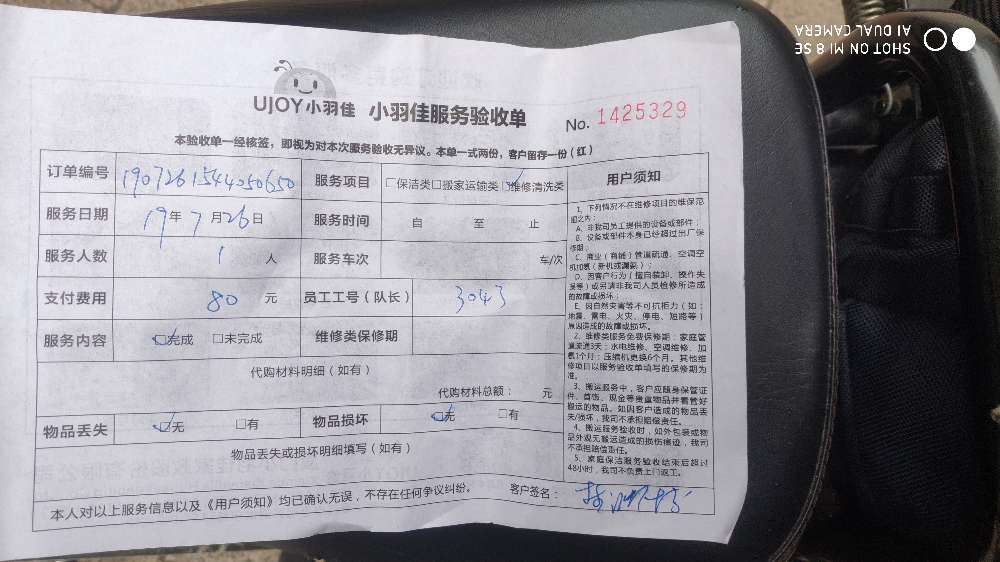 UJOY小羽佳 小羽佳服务验收单 No. 1425329
本验收单一经核签，即视为对本次服务验收无异议。本单一式两份，客户留存一份（红）
订单编号 1907261544050650 服务项目 □保洁类□搬家运输类☑维修清洗类
服务日期 19年 7月26日 服务时间 自 至 止
服务人数 1 人 服务车次 车/次
支付费用 80 元 员工工号（队长） 3043
服务内容 ☑完成 □未完成 维修类保修期
代购材料明细（如有）
代购材料总额： 元
物品丢失 ☑无 □有 物品损坏 ☑无 □有
物品丢失或损坏明细填写（如有）
本人对以上服务信息以及《用户须知》均已确认无误，不存在任何争议纠纷。 客户签名：
用户须知
1、下列情况不在维修项目的维保范
围之内：
A、非我司员工提供的设备或部件；
B、设备或部件本身已经超过出厂保
修期；
C、商业（商铺）管道疏通、空调空
机加氨（新机或漏氨）；
D、因客户行为（擅自装卸、操作失
误等）或另请非我司人员检修所造成
的故障或损坏；
E、因自然灾害等不可抗拒力（如：
地震、雷电、火灾、停电、短路等）
原因造成的故障或损坏。
2、维修类服务免费保修期：家庭管
道疏通3天；水电维修、空调维修、加
氨1个月；压缩机更换6个月。其他维
修项目以服务验收单填写的保修期为
准。
3、搬运服务中，客户应随身保管证
件、首饰、现金等贵重物品并看管好
搬运的物品。如因客户造成的物品丢
失/损坏，我司不承担赔偿责任。
4、搬运服务验收时，如外包装或物
品外观无搬运造成的损伤痕迹，我司
不承担赔偿责任。
5、家庭保洁服务验收结束后超过
48小时，我司不负责上门返工。
SHOT ON MI 8 SE
AI DUAL CAMERA